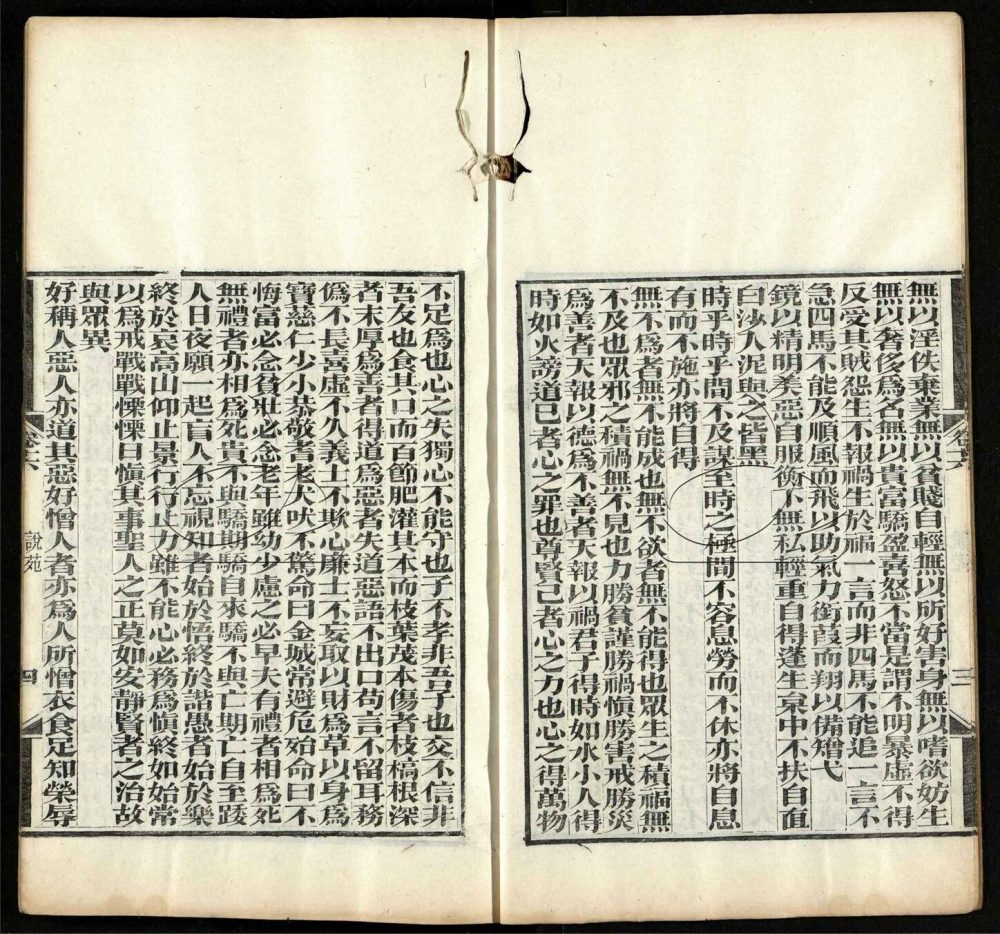 無以淫佚棄業無以貧賤自輕無以所好害身無以嗜欲妨生
無以奢侈爲名無以貴富驕盈喜怒不當是謂不明暴虐不得
反受其賊怨生不報禍生於福一言而非四馬不能追一言不
急四馬不能及順風而飛以助氣力銜葭而翔以備矰弋
鏡以精明美惡自服衡下無私輕重自得蓬生枲中不扶自直
白沙入泥與之皆黑
時乎時乎間不及謀至時之極間不容息勞而不休亦將自息
有而不施亦將自得
無不爲者無不能成也無不欲者無不能得也眾生之積福無
不及也眾邪之積禍無不見也力勝貧謹勝禍愼勝害戒勝災
爲善者天報以德爲不善者天報以禍君子得時如水小人得
時如火謗道己者心之罪也尊賢己者心之力也心之得萬物
三
不足爲也心之失獨心不能守也子不孝非吾子也交不信非
吾友也食其口而百節肥灌其本而枝葉茂本傷者枝槁根深
者末厚爲善者得道爲惡者失道惡語不出口苟言不留耳務
僞不長喜虛不久義士不欺心廉士不妄取以財爲草以身爲
寶慈仁少小恭敬耆老犬吠不驚命曰金城常避危殆命曰不
悔富必念貧壯必念老年雖幼少慮之必早夫有禮者相爲死
無禮者亦相爲死貴不與驕期驕自來驕不與亡期亡自至踒
人日夜願一起盲人不忘視知者始於悟終於諧愚者始於樂
終於哀高山仰止景行行止力雖不能心必務爲愼終如始常
以爲戒戰戰慄慄日愼其事聖人之正莫如安靜賢者之治故
與眾異
好稱人惡人亦道其惡好憎人者亦爲人所憎衣食足知榮辱
卷十六 說苑 四